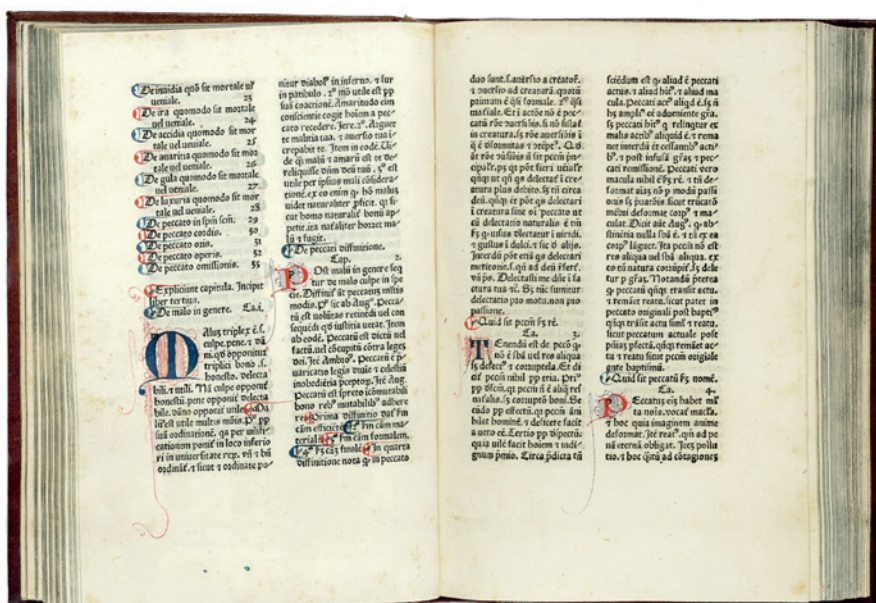 De inuidia quõ sit mortale ṽl
ueniale. 23
De ira quomodo sit mortale
uel ueniale. 24
De accidia quomodo sit mor
tale uel ueniale. 25
De auaritia quomodo sit mor
tale uel ueniale. 26
De gula quomodo sit mortale
uel ueniale. 27
De luxuria quomodo sit mor
tale uel ueniale. 28
De peccato in spm̃ scm̃. 29
De peccato cordis. 30
De peccato oris. 31
De peccato operis. 32
De peccato omissionis. 33
Expliciunt capitula. Incipit
liber tertius.
De malo in genere. Ca. i.
Malus triplex ẽ. s.
culpe. pene. ⁊
ni. qď opponitur
triplici bono .s.
honesto. delecta
bili. ⁊ utili. culpe opponit̃
honestum. pene opponit̃ delecta
bile. uño opponit̃ utile.
est utile multis modis. pp
suã ordinationẽ. qñ per iusti-
cationem ponit̃ in loco inferio
ri in uniuersitate reꝝ.
ordinat̃. ⁊ sicut ⁊ ordinate po-
nitur diabol⁹ in inferno. ⁊ fur
in patibulo. 2⁹ mõ utile est pp
suã coactionẽ. Amaritudo eim
conscientie cogit hoiem a pec
cato recedere. Jere. 2⁹. Arguet
te malitia tua. ⁊ auersio tua ĩ
crepabit te. Item in eodẽ. Ui-
de qꝫ malũ ⁊ amarũ est te de-
reliquisse dñm deũ tuũ. 3⁹ est
utile per ipsius mali cõsidera-
tionẽ. ex eo enim
uidet̃ naturaliter ꝓficit. qꝛ si-
cut homo naturalit̃ bonũ ap-
petit. ita nãliter horret ma-
lũ ⁊ fugit.
De peccati diffinitione.
Cap. 2.
Post malũ in genere seq̃
tur de malo culpe in spe
cie. Diffinit̃ aũt peccatum multis
modis. P⁹ sic ab Aug⁹. Pecca
tũ est uolũtas retinẽdi uel con
sequẽdi qď iustitia uetat. Item
ab eodẽ. Peccatũ est dictũ uel
factũ. uel cõcupitũ cõtra leges
dei. Itẽ Ambro⁹. Peccatũ ẽ p̃
uaricatio legis diuie ⁊ celestiũ
inobediẽtia p̃ceptoꝝ. Itẽ Aug.
Peccatũ est spreto icõmutabili
bono reb⁹ mutabilib⁹ adhere
re. Prima diffinitio dat̃ s̃m
cãm efficiẽtẽ. 2⁹ s̃m cãm ma-
terialẽ. 3⁹ s̃m cãm formalem.
4⁹ s̃m cãm finalẽ. In quarta
diffinitione nota qꝫ in peccato
duo sunt. s. auersio a creatoꝛ̃.
⁊ ꝯuersio ad creaturã. quoꝝ
primum ẽ q̃si formale. 2⁹ q̃si
mãiale. Et ĩ actõe nõ ẽ pec-
catũ rõe ꝯuersiõis. si nõ sistat̃
in creatura. sꝫ rõe auersiõis ĩ
q̃ ẽ difformitas ⁊
de rõe ꝯuersiõis sit pctm̃ prin
cipalr̃. pꝫ qꝛ põt fieri ueiale
qñqꝫ ut qñ q̃s delectat̃ ĩ crea
tura plus debito. sꝫ tñ citra
deũ. qñqꝫ ẽt põt q̃s delectari
ĩ creatura sine oĩ peccato ut
cũ delectatio naturalis ẽ tm̃
sꝫ q̃ uisus delectatur ĩ uiridi.
⁊ gustus ĩ dulci. ⁊ sic ď alijs.
Interdũ põt etiã q̃s delectari
meritorie. s. qñ ad deũ refert̃.
uñ ps. Delectasti me dñe ĩ fa-
ctura tua ⁊c̃. Sꝫ tũc sumitur
delectatio pro motu. non pro
passione.
Quid sit pctm̃ sꝫ rẽ.
Ca. 3.
Tenendũ est de pctõ qꝫ
nõ ẽ sbã uel res aliqua
sꝫ defect⁹ ⁊ corruptela. Et di
cit̃ pctm̃ nihil pp tria. Pri⁹
pp qꝛ pctm̃ nõ ẽ aliq̃ res
nãlis. sꝫ corruptõ boni. Se
cũdo pp effectũ. qꝛ pctm̃ ani
hilat hominẽ. ⁊ deficere facit
a uero eẽ. Tertio pp
quia uile facit hoiem ⁊ indi
gnum p̃mio. Circa p̃dicta tñ
sciẽdum est qꝫ aliud ẽ peccati
actus. ⁊ aliud hit⁹. ⁊ aliud ma
cula. Peccati act⁹ aliqd ẽ. sꝫ ñ
hꝫ ampli⁹ eẽ adueniente gr̃a.
sꝫ peccati hit⁹ q̃ relinqtur ex
malis actib⁹ aliquid ẽ. ⁊ rema
net interdũ ẽt cessantib⁹ acti
b⁹. ⁊ post infusã gr̃am ⁊ pec-
cati remissionẽ. Peccati uero
macula nihil ẽ sꝫ rẽ. ⁊ tñ de-
format aĩas nõ p modũ passi
onis sꝫ p̃uatõis. sicut trũcatõ
mẽbri deformat corp⁹ ⁊ ma-
culat. Dicit aũt Aug⁹. qꝫ ab-
stinẽtia nulla sbã ẽ. ⁊ tñ ex ea
corp⁹ lãguet. Ita pctm̃ nõ est
res aliqua uel sbã aliqua. ex
eo tñ natura corrũpit̃. sꝫ dele
tur p gr̃am. Notandũ p̃terea
qꝫ peccatũ qñqꝫ transit actu.
⁊ remãet reatu. sicut patet in
peccato originali post bapti⁹
qñqꝫ trãsit actu siml̃ ⁊ reatu.
sicut peccatum actuale post
pñiam pfctã. qñqꝫ remãet ac-
tu ⁊ reatu sicut pctm̃ origiale
ante baptismũ.
Quid sit peccatũ sꝫ nomẽ.
Ca. 4.
Peccatũ eĩs habet ml̃
ta noĩa. uocat̃ macl̃a.
⁊ hoc quia imaginem anime
deformat. Itẽ reat⁹. qñ ad pe
nã eternã obligat. Itẽ pollu
tio. ⁊ hoc q̃tũ ad cõtagiones